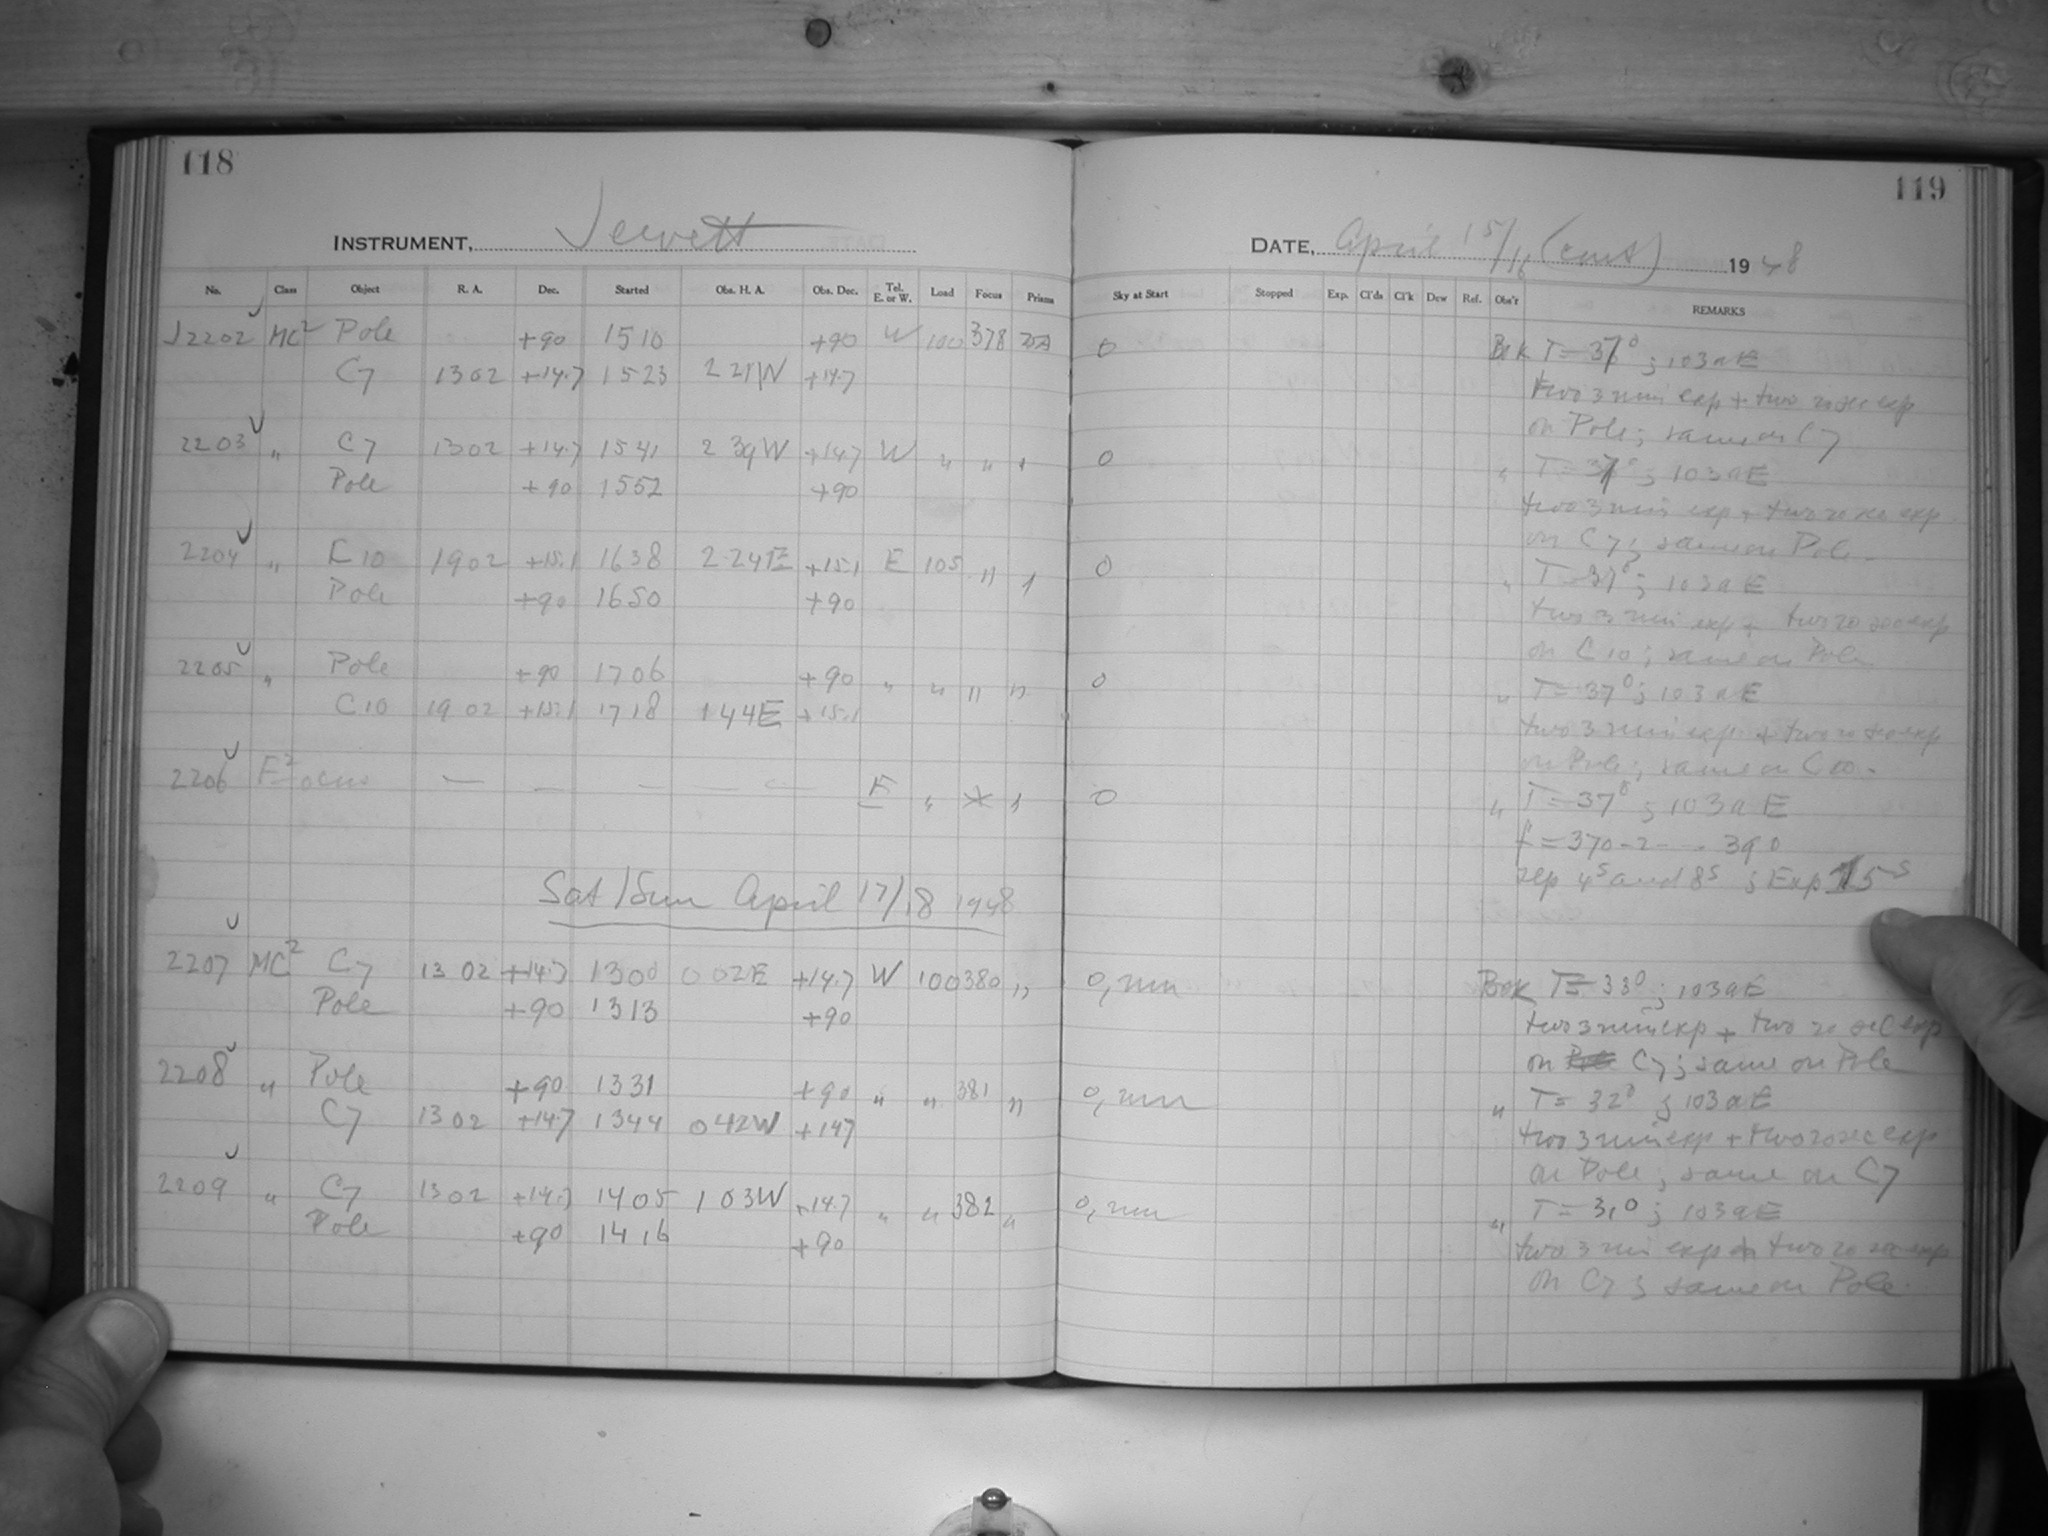 118
119
INSTRUMENT, Jewett
DATE, April 15/16 (cont) 1948
No. Class Object R. A. Dec. Started Obs. H. A. Obs. Dec. Tel. E. or W. Load Focus Prisms Sky at Start Stopped Exp. Cl'ds Cl'k Dew Ref. Obs'r REMARKS
J2202 MC² Pole +90 1510 +90 W 100 378 0 Bok T = 37° ; 103aE
C7 1302 +14.7 1523 2 21W +14.7 two 3 min exp + two 20 sec exp
on Pole; same on C7
2203 " C7 1302 +14.7 1541 2 39W +14.7 W " " 0 " T = 37° ; 103aE
Pole +90 1552 +90 two 3 min exp + two 20 sec exp
on C7; same on Pole
2204 " C10 1902 +15.1 1638 2 24E +15.1 E 105 " 0 " T = 37° ; 103aE
Pole +90 1650 +90 two 3 min exp + two 20 sec exp
on C10; same on Pole
2205 " Pole +90 1706 +90 " " " " 0 " T = 37° ; 103aE
C10 1902 +15.1 1718 144E +15.1 two 3 min exp + two 20 sec exp
on Pole; same on C10.
2206 F² Focus — — — — — E " * 0 " T = 37° ; 103aE
f = 370-2---390
sep 4ˢ and 8ˢ ; Exp 15ˢ
Sat/Sun April 17/18 1948
2207 MC² C7 1302 +14.7 1300 0 02E +14.7 W 100 380 " 0, mm Bok T = 33° ; 103aE
Pole +90 1313 +90 two 3 min exp + two 20 sec exp
on C7; same on Pole
2208 " Pole +90 1331 +90 " " 381 " 0, mm " T = 32° ; 103aE
C7 1302 +14.7 1344 0 42W +14.7 two 3 min exp + two 20 sec exp
on Pole; same on C7
2209 " C7 1302 +14.7 1405 1 03W +14.7 " " 382 " 0, mm " T = 31° ; 103aE
Pole +90 1416 +90 two 3 min exp + two 20 sec exp
on C7; same on Pole.